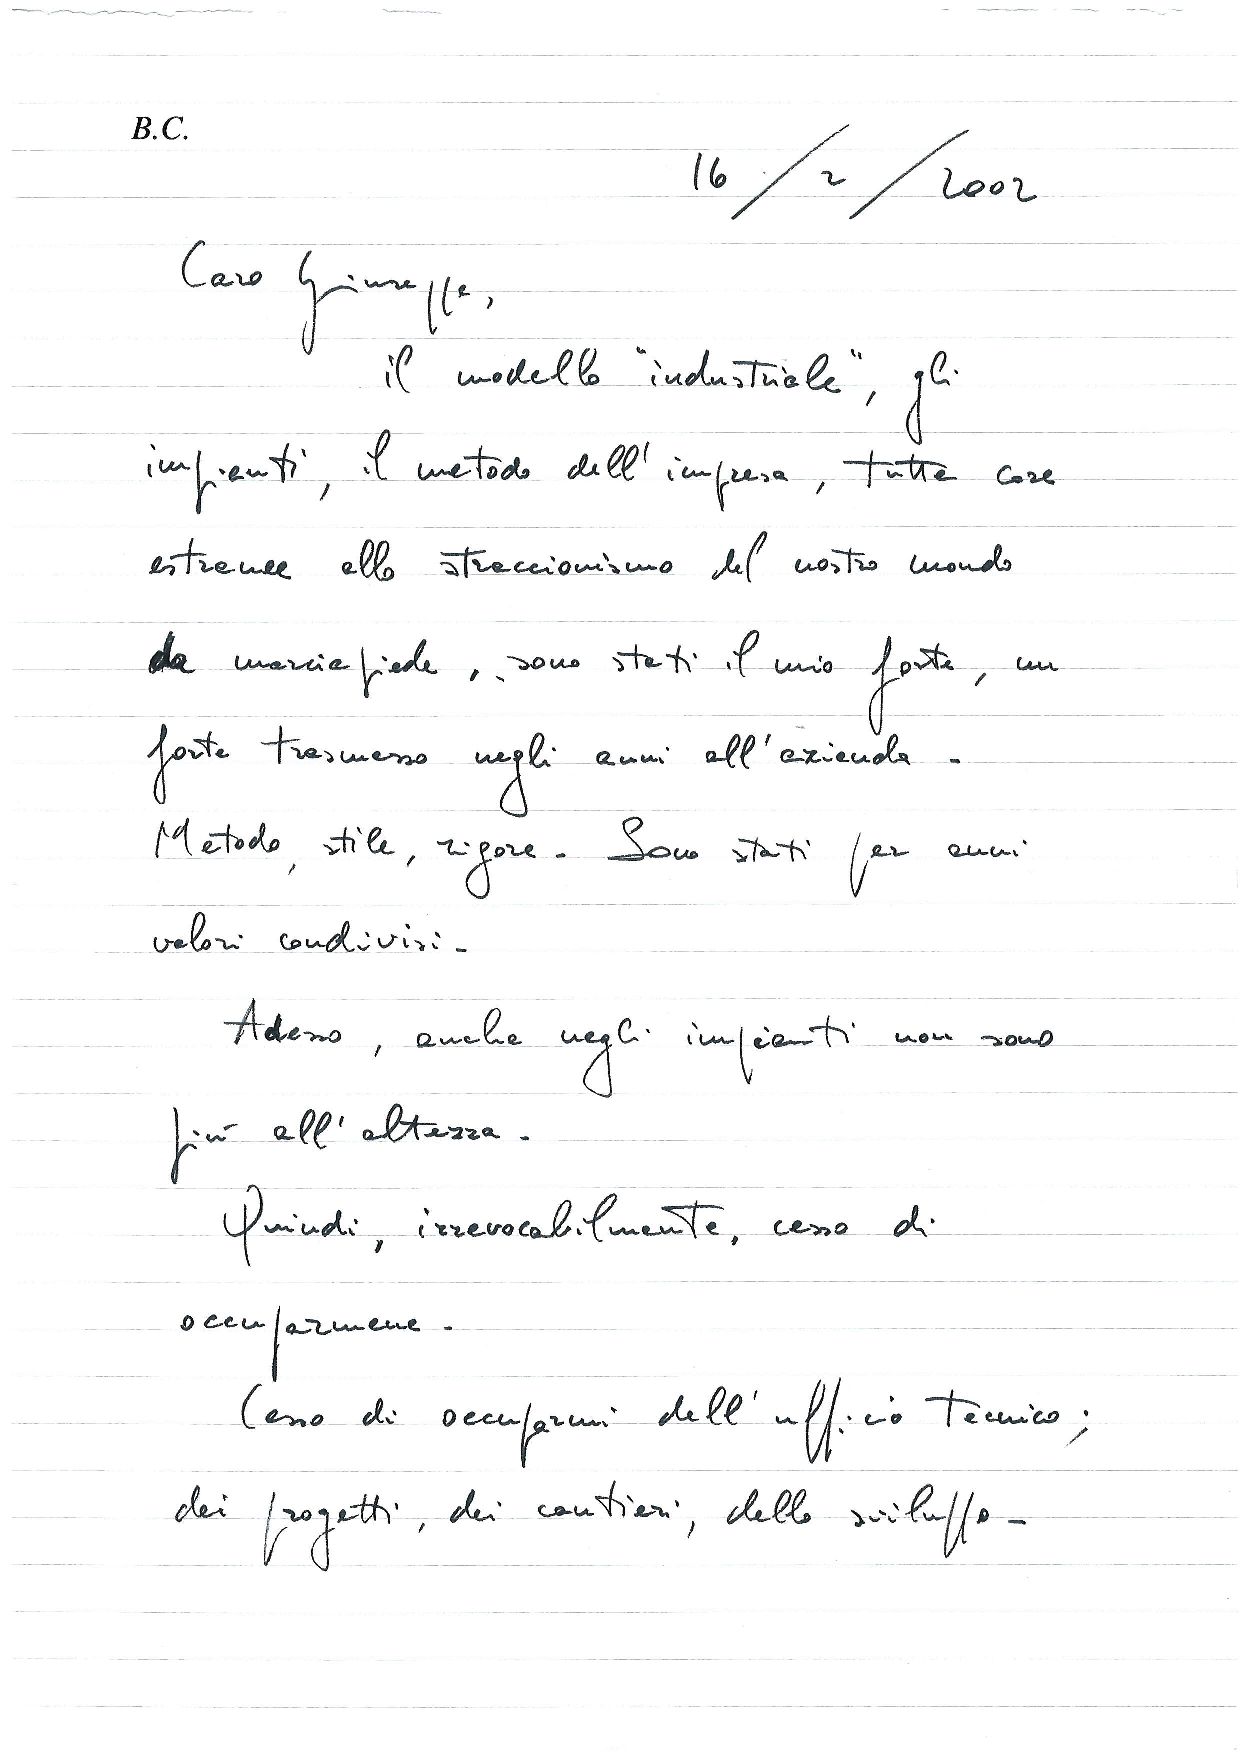 B.C.
16/2/2002
Caro Giuseppe,
il modello "industriale", gli
impianti, il metodo dell'impresa, tutte cose
estranee allo straccionismo del nostro mondo
da marciapiede, sono stati il mio forte, un
forte trasmesso negli anni all'azienda.
Metodo, stile, rigore. Sono stati per anni
valori condivisi.
Adesso, anche negli impianti non sono
più all'altezza.
Quindi, irrevocabilmente, cesso di
occuparmene.
Cesso di occuparmi dell'ufficio tecnico;
dei progetti, dei cantieri, dello sviluppo.